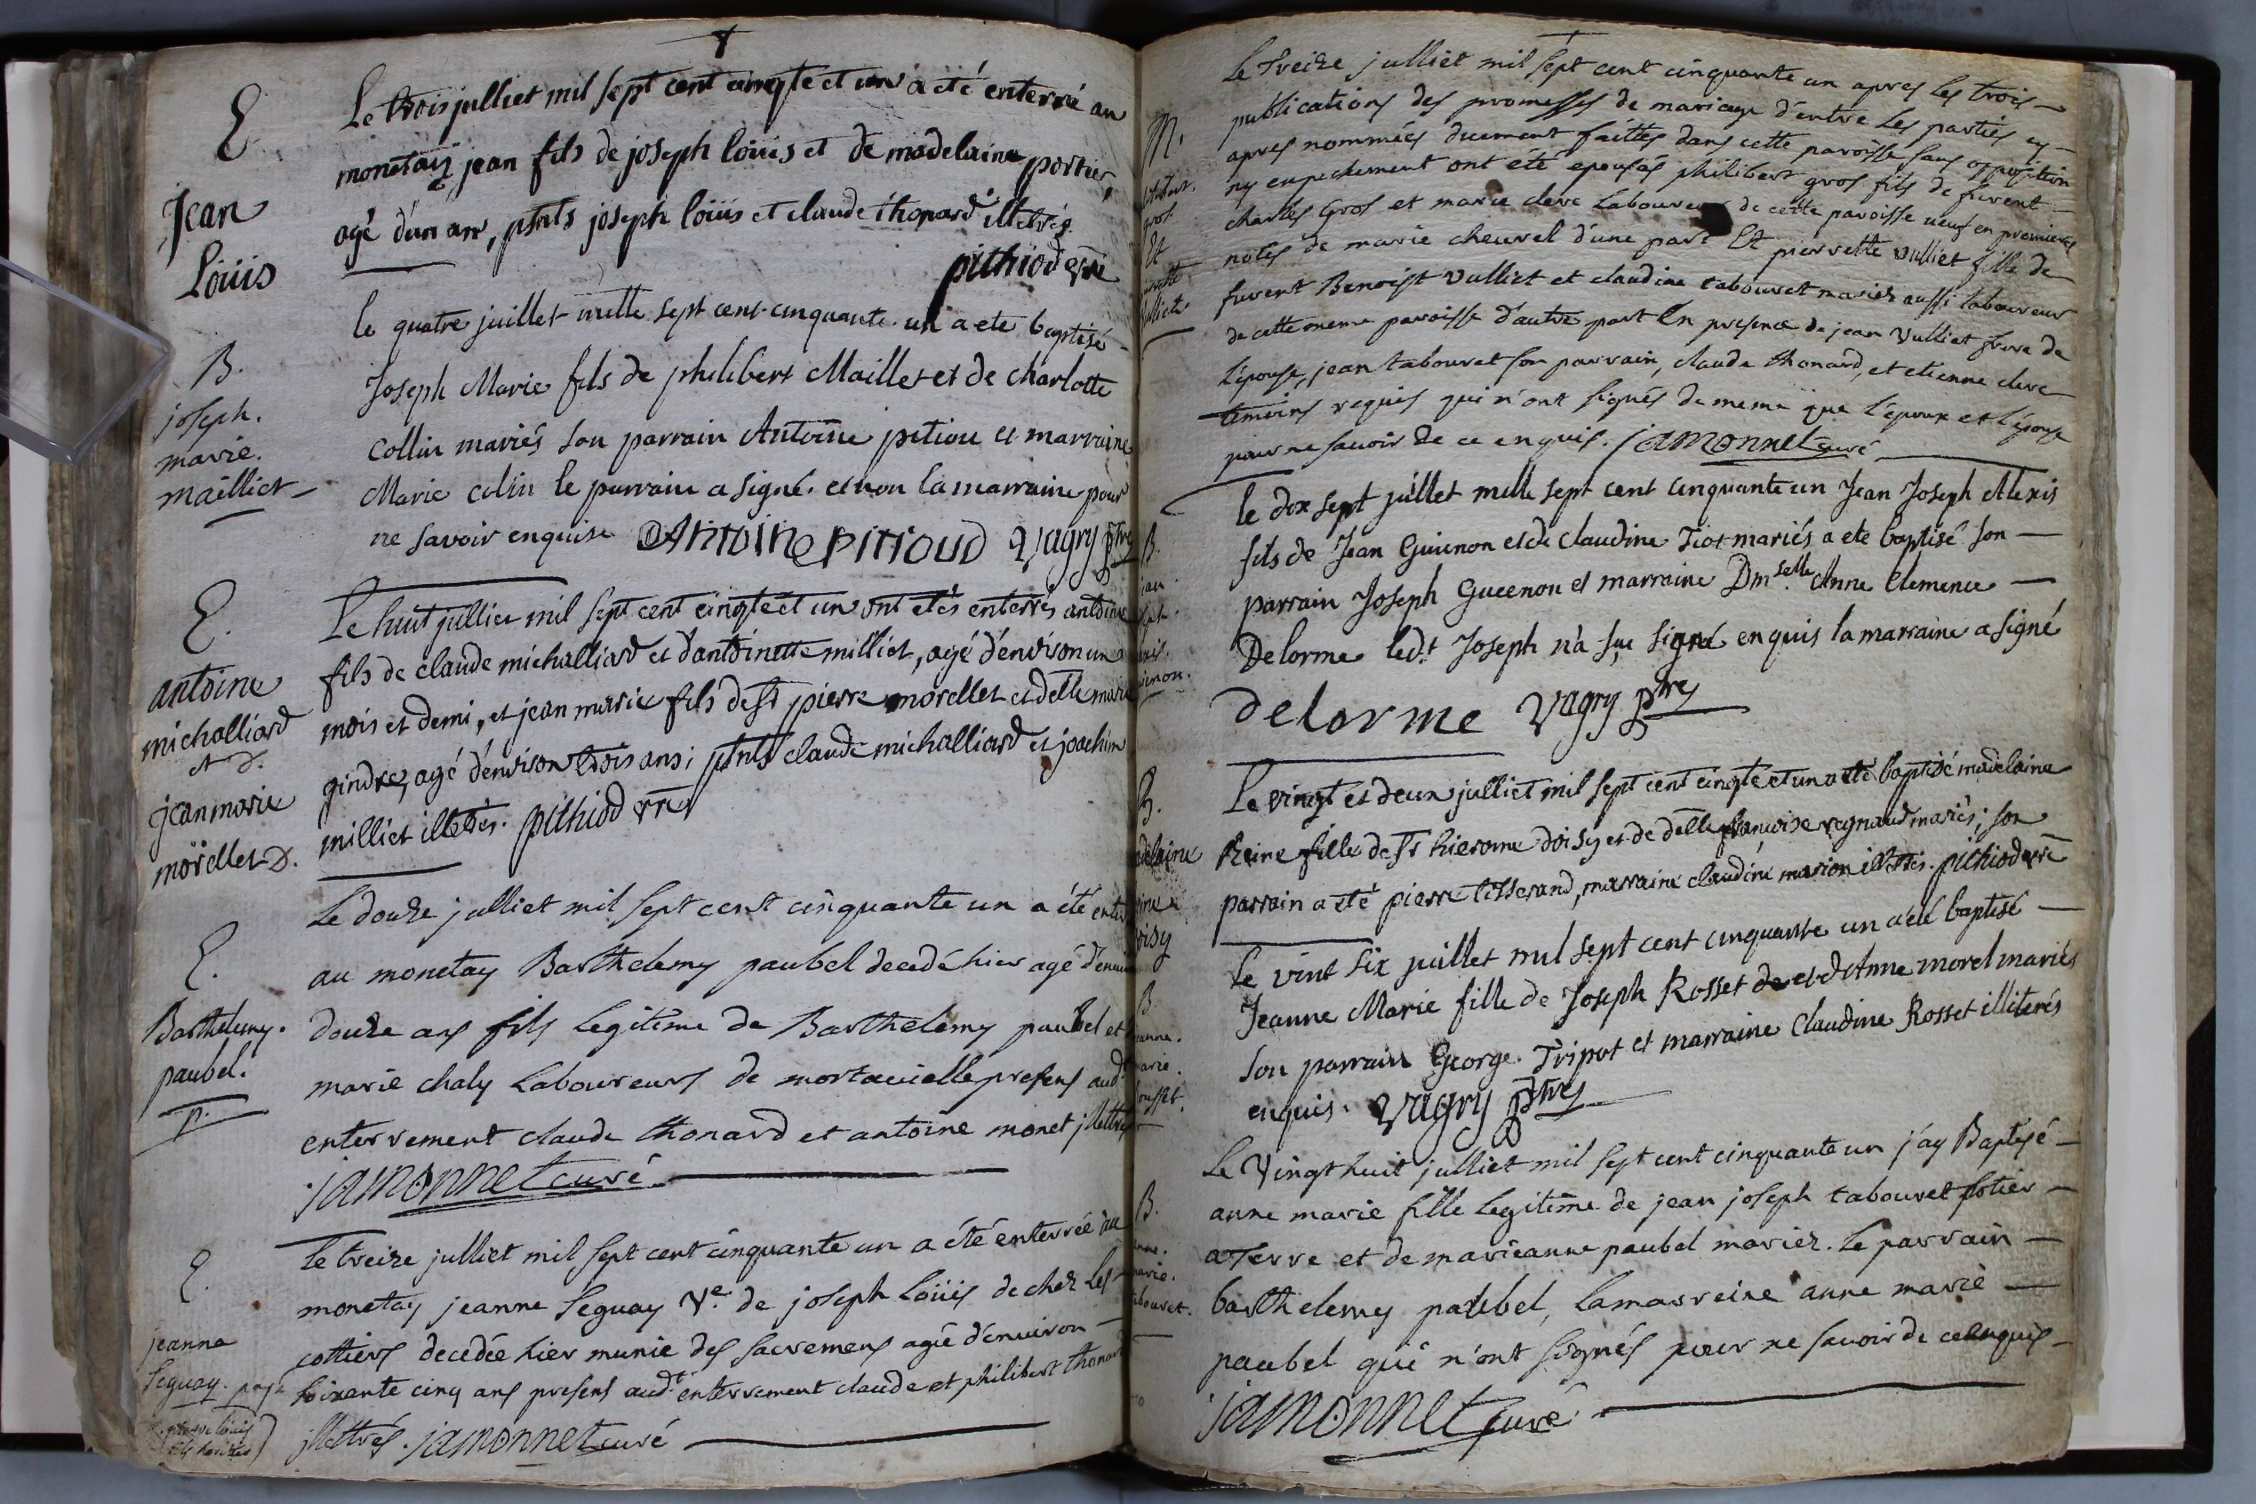 E
Jean
Loüis
Le trois julliet mil sept cent cinqte et un a eté enterré au
monetay jean fils de joseph loüis et de madelaine portier,
agé d'un an, pnts joseph loüis et claude thonard illetrés.
pithiod vre
B.
joseph.
marie.
maïlliet
le quatre juillet mille sept cent cinquante un a ete baptisé
Joseph Marie fils de philibert Maillet et de charlotte
Collin mariés son parrain Antoine pitiou et marraine
Marie colin le parrain a signé et non la marraine pour
ne savoir enquise Antoine pitioud Vagry ptre
E.
antoine
michalliard
et D.
jean marie
mörellet D.
Le huit julliet mil sept cent cinqte et un ont etés enterrés antoine
fils de claude michalliard et d'antoinette milliet, agé d'environ un
mois et demi, et jean marie fils de sr pierre morellet et delle marie
gindre, agé d'environ trois ans; pnts claude michalliard et joachim
milliet illetrés. pithiod vre
E.
Barthelemy.
paubel.
p.
Le douze julliet mil sept cent cinquante un a été enter
au monetay Barthelemy paubel decedé hier agé d'envi
douze ans fils legitime de Barthelemy paubel et
marie chaly Laboureurs de mortavielle presens audt
enterrement claude thonard et antoine monet jllettrés
jamonnet curé
E.
jeanne
Seguay.
Le treize julliet mil sept cent cinquante un a été enterrée au
monetay jeanne Seguay Ve. de joseph Loüis de chez Les
cottiers decedée hier munie des sacremens agée d'environ
soixante cinq ans presens audt enterrement claude et philibert thonard
jllettrés. jamonnet curé
M.
gros
Et
Le treize julliet mil sept cent cinquante un apres les trois
publications des promesses de mariage d'entre les parties cy
apres nommées duement faittes dans cette paroisse sans opposition
ny enpechement ont été epousés philibert gros fils de furent
charles Gros et marie clere Laboureur de cette paroisse veuf en premieres
notes de marie cheurel d'une part Et pierrette Vulliet fille de
furent Benoist Vulliet et claudine tabouret mariez aussi laboureurs
de cette meme paroisse d'autre part En presence de jean Vulliet frere de
l'epouse, jean tabouret son parrain, claude thonard, et etienne clere
temoins requis qui n'ont signés de meme que l'epoux et l'épouse
pour ne sçavoir de ce enquis. jamonnet curé
B.
le dix sept juillet mille sept cent cinquante un Jean Joseph Alexis
fils de Jean Guienon et de claudine Tiot mariés a ete baptisé son
parrain Joseph Gueenon et marraine Dmselle Anne Clemence
Delorme ledt Joseph n'a sçu signé enquis la marraine a signé
delorme Vagry ptre
B.
Le vingt et deux julliet mil sept cent cinqte et un a eté baptisé madelaine
Reine fille de sr hierome doisy et de delle francoise regnaud mariés; son
parrain a eté pierre tisserand, marraine claudine marion illetrés. pithiod vre
B.
Le vint six juillet mil sept cent cinquante un a eté baptisé
Jeanne Marie fille de Joseph Rosset de et d'Anne morel mariés
Son parrain George Tripot et marraine Claudine Rosset illiterés
enquis. Vagry ptre
B.
Le Vingt huit julliet mil sept cent cinquante un j'ay Baptisé
anne marie fille legitime de jean joseph tabouret potier
a Terre et de marieanne paubel mariez. Le parrain
barthelemy paubel, La marreine anne marie
paubel qui n'ont signés pour ne sçavoir de ce enquis
jamonnet curé